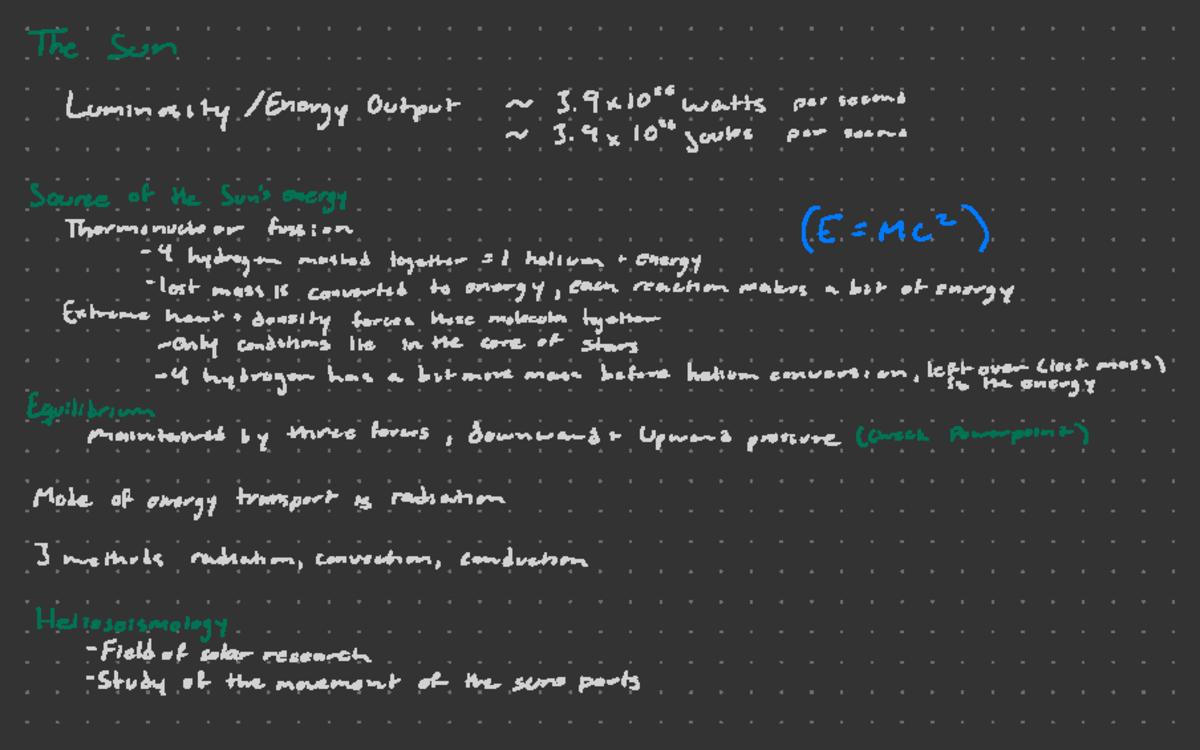 The Sun
Luminosity/Energy Output ~ 3.9 x 10²⁶ watts per second
~ 3.9 x 10²⁶ joules per second
Source of the Sun's energy
Thermonuclear fusion
(E = Mc²)
- 4 hydrogen mashed together = 1 helium + energy
- lost mass is converted to energy, each reaction makes a bit of energy
Extreme heat + density forces these molecules together
- Only conditions lie in the core of stars
- 4 hydrogen has a bit more mass before helium conversion, left over (lost mass)
is the energy
Equilibrium
maintained by three forces, downward + Upward pressure (Check Powerpoint)
Mode of energy transport is radiation
3 methods radiation, convection, conduction
Helioseismology
- Field of solar research
- Study of the movement of the suns parts